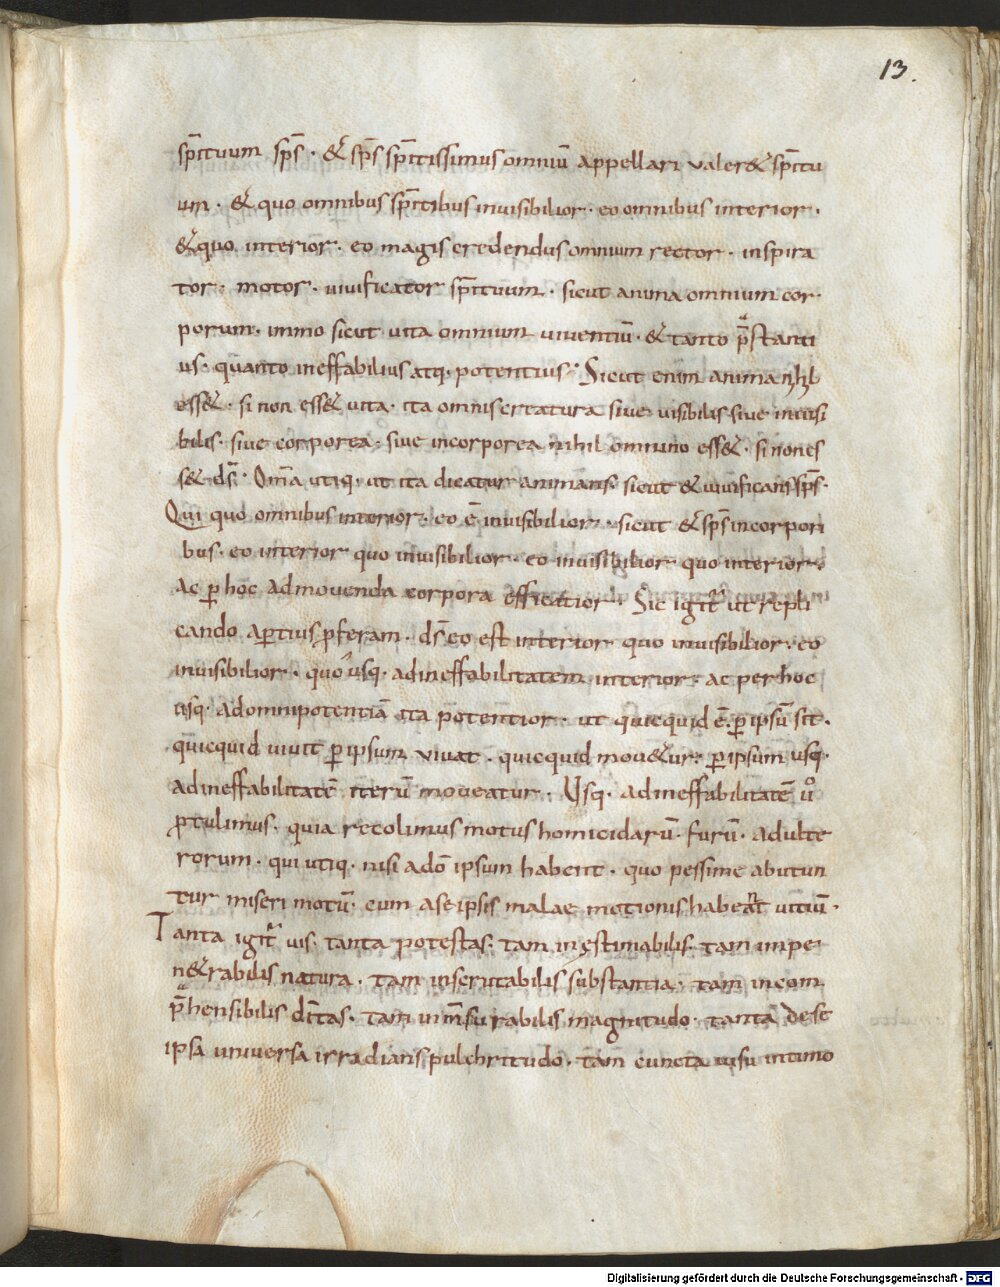 13.
sp̄ituum sp̄s · & sp̄s sp̄itissimus omniū appellari valer& sp̄itu
um · & quo omnibus sp̄itibus inuisibilior · eo omnibus interior ·
& quo interior · eo magis credendus omnium rector · inspira
tor · motor · uiuificator sp̄ituum · sicut anima omnium cor
porum · immo sicut uita omnium uiuentiū · & tanto p̄stanti
us · quanto ineffabilius atq· potentius · Sicut enim anima nihil
ess& · si non ess& uita · ita omnis creatura siue uisibilis siue inuisi
bilis · siue corporea · siue incorporea nihil omnino ess& · si non es
s& d̄s · Om̄a utiq· ut ita dicatur animans · sicut & uiuificans sp̄s ·
Qui quo omnibus interior · eo ē inuisibilior · sicut & sp̄s incorpori
bus · eo interior quo inuisibilior · eo inuisibilior quo interior ·
ac p̱ hoc ad mouenda corpora efficatior · Sic igit̄ ut repli
cando ap̱tius p̱feram · d̄s eo est interior quo inuisibilior · eo
inuisibilior · quo usq· ad ineffabilitatem interior · ac per hoc
usq· ad omnipotentiā ita potentior · ut quicquid ē p̱ ipsū sit ·
quicquid uiuit p̱ ipsum viuat · quicquid mou&ur · p̱ ipsum usq·
ad ineffabilitatē iterū moueatur · Usq· ad ineffabilitatē uº
p̱tulimus · quia recolimus motus homicidarū · furū · adulte
rorum · qui utiq· nisi a d̄o ipsum habent · quo pessime abutun
tur miseri motū · cum a se ipsis malae motionis habeant uitiū ·
Tanta igit̄ uis · tanta potestas · tam inęstimabilis · tam impe
n&rabilis natura · tam inscrutabilis substantia · tam incom
p̄hensibilis diītas · tam inm̄surabilis magnitudo · tanta de se
ipsa uniuersa irradians pulchritudo · tam cuncta uisu intimo
Digitalisierung gefördert durch die Deutsche Forschungsgemeinschaft - DFG